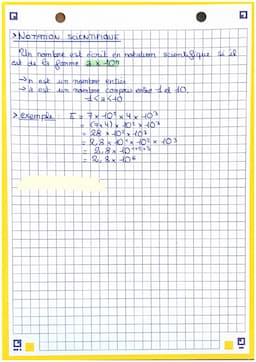 > NOTATION SCIENTIFIQUE
Un nombre est écrit en notation scientifique si il
est de la forme a x 10ⁿ
→ n est un nombre entier
→ a est un nombre compris entre 1 et 10.
1 < a < 10
> exemple E = 7 x 10² x 4 x 10³
= (7x4) x 10² x 10³
= 28 x 10² x 10³
= 2,8 x 10¹ x 10² x 10³
= 2,8 x 10¹⁺²⁺³
= 2,8 x 10⁶